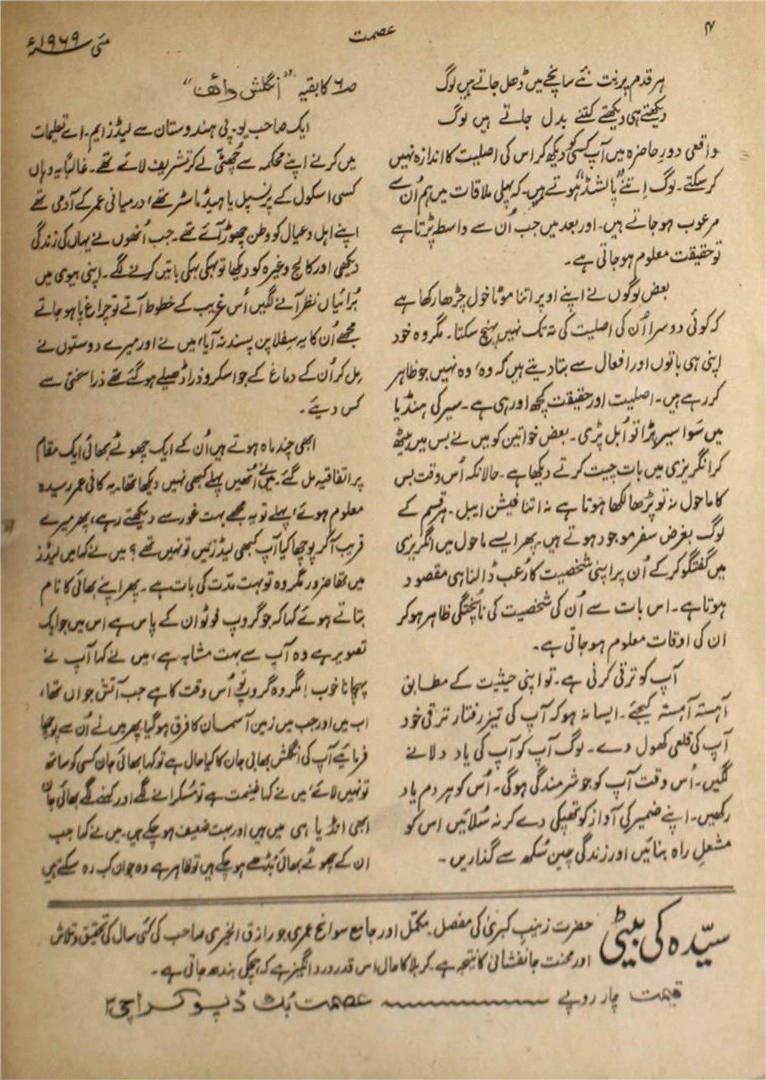 ۴
عصمت
مئی ۱۹۶۹ء
ہر قدم پر نت نئے سانچے میں ڈھل جاتے ہیں لوگ
دیکھتے ہی دیکھتے کتنے بدل جاتے ہیں لوگ
واقعی دورِ حاضرہ میں آپ کسی کو دیکھ کر اس کی اصلیت کا اندازہ نہیں
کر سکتے۔ لوگ اتنے "پالشڈ" ہوتے ہیں۔ کہ پہلی ملاقات میں ہم اُن سے
مرعوب ہو جاتے ہیں۔ اور بعد میں جب اُن سے واسطہ پڑتا ہے
تو حقیقت معلوم ہو جاتی ہے۔
بعض لوگوں نے اپنے اوپر اتنا موٹا خول چڑھا رکھا ہے
کہ کوئی دوسرا اُن کی اصلیت کی تہ تک نہیں پہنچ سکتا۔ مگر وہ خود
اپنی ہی باتوں اور افعال سے بتا دیتے ہیں کہ وہ، وہ نہیں جو ظاہر
کر رہے ہیں۔ اصلیت اور حقیقت کچھ اور ہی ہے۔ سیر کی ہنڈیا
میں سوا سیر پڑا تو اُبل پڑی۔ بعض خواتین کو میں نے بس میں بیٹھ
کر انگریزی میں بات چیت کرتے دیکھا ہے۔ حالانکہ اُس وقت بس
کا ماحول نہ تو پڑھا لکھا ہوتا ہے نہ اتنا فیشن ایبل۔ ہر قسم کے
لوگ بغرض سفر موجود ہوتے ہیں۔ پھر ایسے ماحول میں انگریزی
میں گفتگو کر کے اُن پر اپنی شخصیت کا رُعب ڈالنا ہی مقصود
ہوتا ہے۔ اس بات سے اُن کی شخصیت کی ناپختگی ظاہر ہو کر
ان کی اوقات معلوم ہو جاتی ہے۔
آپ کو ترقی کرنی ہے۔ تو اپنی حیثیت کے مطابق
آہستہ آہستہ کیجئے۔ ایسا نہ ہو کہ آپ کی تیز رفتار ترقی خود
آپ کی قلعی کھول دے۔ لوگ آپ کو آپ کی یاد دلانے
لگیں۔ اُس وقت آپ کو جو شرمندگی ہوگی۔ اُس کو ہر دم یاد
رکھیں۔ اپنے ضمیر کی آواز کو تھپکی دے کر نہ سُلائیں اس کو
مشعلِ راہ بنائیں اور زندگی چین سُکھ سے گذاریں۔
ص۶ کا بقیہ "انگلش وائف"
ایک صاحب یو۔پی ہندوستان سے لیڈز ایم۔اے تعلیمات
میں کرنے اپنے محکمہ سے چُھٹی لے کر تشریف لائے تھے۔ غالباً یہ وہاں
کسی اسکول کے پرنسپل یا ہیڈ ماسٹر تھے، درمیانی عمر کے آدمی تھے
اپنے اہل و عیال کو وطن چھوڑ آئے تھے۔ جب اُنھوں نے یہاں کی زندگی
دیکھی اور کالج وغیرہ کو دیکھا تو بہکی بہکی باتیں کرنے لگے۔ اپنی بیوی میں
بُرائیاں نظر آنے لگیں اُس غریب کے خطوط آتے تو چراغ پا ہو جاتے
مجھے اُن کا یہ سِفلا پن پسند نہ آیا، میں نے اور میرے دوستوں نے
مِل کر اُن کے دماغ کے جو اسکرو ذرا ڈھیلے ہو گئے تھے ذرا سختی سے
کس دیئے۔
ابھی چند ماہ ہوتے ہیں اُن کے ایک چھوٹے بھائی ایک مقام
پر اتفاقیہ مل گئے۔ میں نے اُنھیں پہلے کبھی نہیں دیکھا تھا۔ یہ کافی عمر رسیدہ
معلوم ہوئے، پہلے تو یہ مجھے بہت غور سے دیکھتے رہے، پھر میرے
قریب آ کر پوچھا کیا آپ کبھی لیڈز میں تو نہیں تھے؟ میں نے کہا میں لیڈز
میں تھا ضرور مگر وہ تو بہت مدّت کی بات ہے۔ پھر اپنے بھائی کا نام
بتاتے ہوئے کہا کہ جو گروپ فوٹو ان کے پاس ہے اس میں جو ایک
تصویر ہے وہ آپ سے بہت مشابہ ہے، میں نے کہا آپ نے
پہچانا خوب! مگر وہ گروپ اُس وقت کا ہے جب آتش جواں تھا،
اب میں اور جب میں زمین آسمان کا فرق ہو گیا پھر میں نے اُن سے پوچھا
فرمایئے آپ کی انگلش بھابی جان کا کیا حال ہے تو کہا بھائی جان کسی کو ساتھ
تو نہیں لائے، میں نے کہا غنیمت ہے تو مُسکرانے لگے اور کہنے لگے بھائی جان
ابھی انڈیا ہی میں ہیں اور بہت ضعیف ہو چکے ہیں۔ میں نے کہا جب
ان کے چھوٹے بھائی بُڈھے ہو چکے ہیں تو ظاہر ہے وہ جوان کب رہ سکتے ہیں
سیّدہ کی بیٹی
حضرت زینب کبریٰ کی مفصل۔ مکمّل اور جامع سوانح عمری جو رازق الخیری صاحب کی کئی سال کی تحقیق و تلاش
اور محنت جانفشانی کا نتیجہ ہے۔ کربلا کا حال اس قدر درد انگیز ہے کہ ہچکی بندھ جاتی ہے۔
قیمت چار روپے عصمت بُک ڈپو کراچی ۳